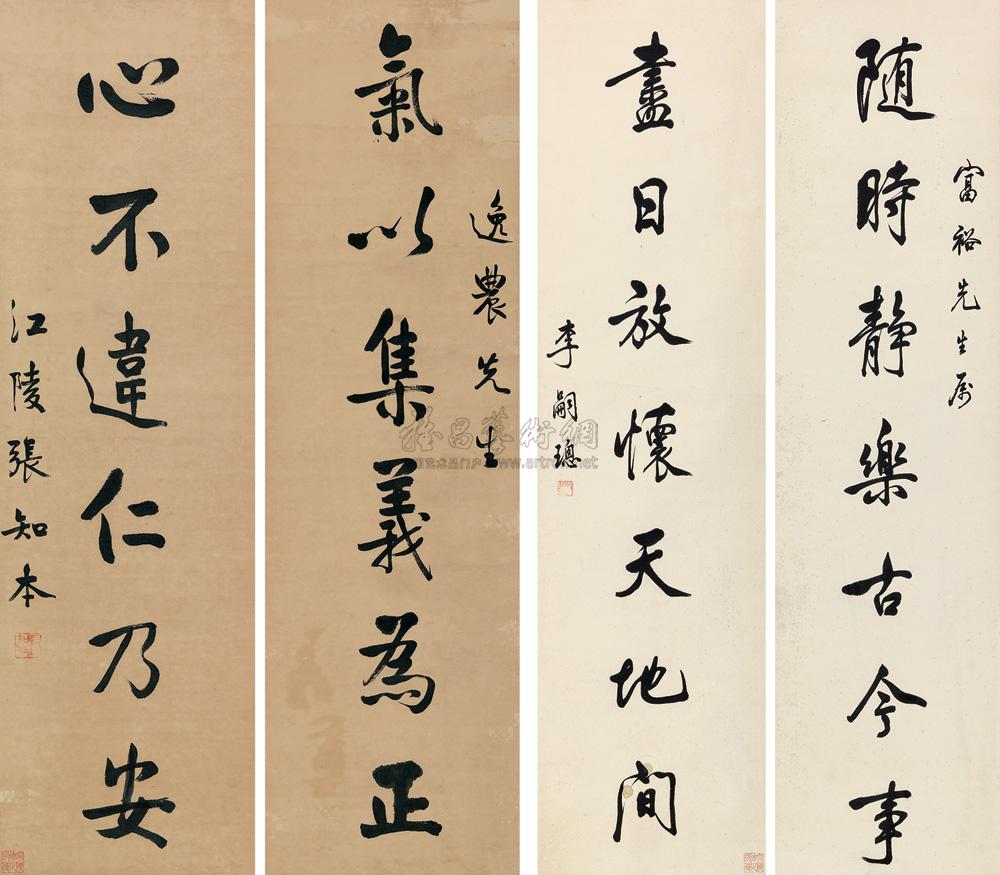 富裕先生属
随時静樂古今事
盡日放懷天地間
李嗣璁
逸農先生
氣以集義為正
心不違仁乃安
江陵張知本